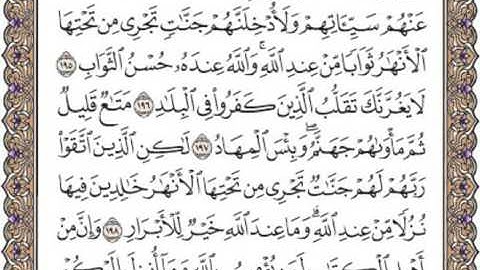 عَنْهُمْ سَيِّـَٔاتِهِمْ وَلَأُدْخِلَنَّهُمْ جَنَّٰتٍ تَجْرِى مِن تَحْتِهَا
ٱلْأَنْهَٰرُ ثَوَابًا مِّنْ عِندِ ٱللَّهِ ۗ وَٱللَّهُ عِندَهُۥ حُسْنُ ٱلثَّوَابِ ١٩٥
لَا يَغُرَّنَّكَ تَقَلُّبُ ٱلَّذِينَ كَفَرُوا۟ فِى ٱلْبِلَٰدِ ١٩٦ مَتَٰعٌ قَلِيلٌ
ثُمَّ مَأْوَىٰهُمْ جَهَنَّمُ ۚ وَبِئْسَ ٱلْمِهَادُ ١٩٧ لَٰكِنِ ٱلَّذِينَ ٱتَّقَوْا۟
رَبَّهُمْ لَهُمْ جَنَّٰتٌ تَجْرِى مِن تَحْتِهَا ٱلْأَنْهَٰرُ خَٰلِدِينَ فِيهَا
نُزُلًا مِّنْ عِندِ ٱللَّهِ ۗ وَمَا عِندَ ٱللَّهِ خَيْرٌ لِّلْأَبْرَارِ ١٩٨ وَإِنَّ مِنْ